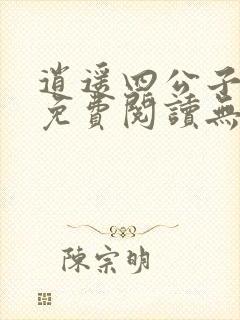 逍遥四公子
免費閱讀無
陳宗明